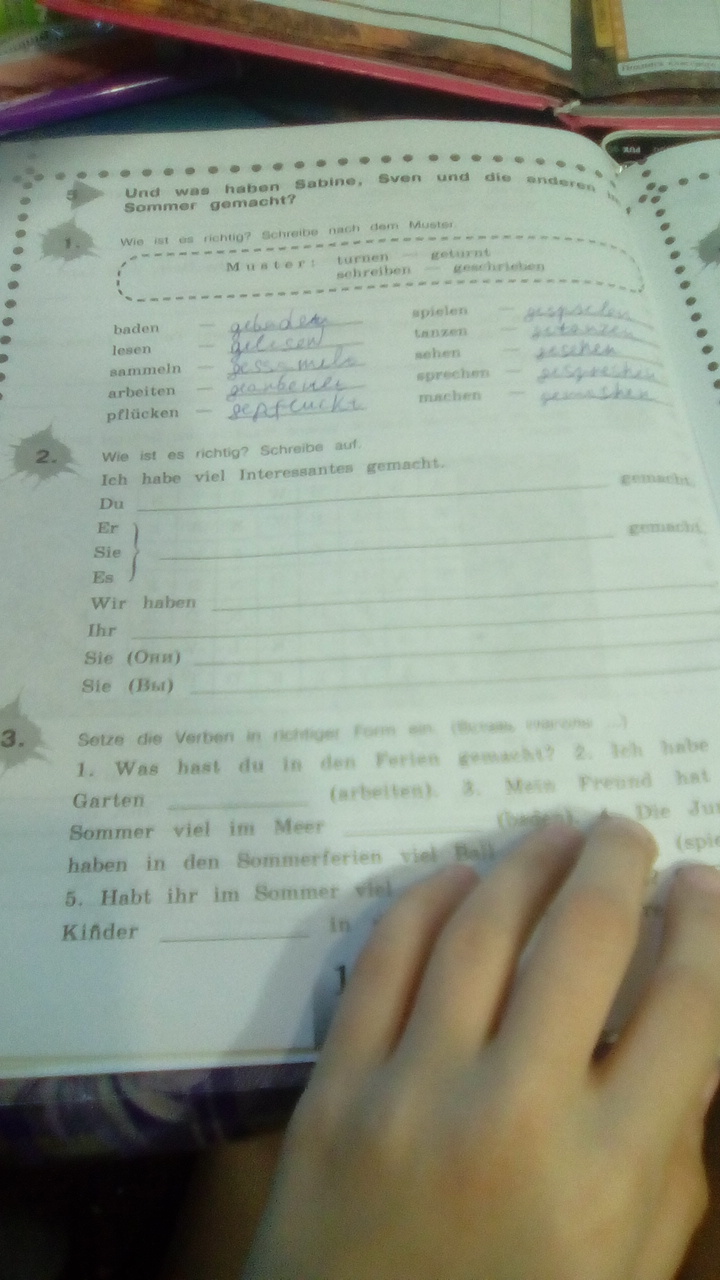 5 Und was haben Sabine, Sven und die anderen im
Sommer gemacht?
1. Wie ist es richtig? Schreibe nach dem Muster.
Muster: turnen — geturnt
schreiben — geschrieben
baden — gebaden
lesen — gelesen
sammeln —
arbeiten —
pflücken — gepfluckt
spielen —
tanzen — getanzen
sehen — gesehen
sprechen — gesprechen
machen — gemachen
2. Wie ist es richtig? Schreibe auf.
Ich habe viel Interessantes gemacht.
Du gemacht.
Er
Sie gemacht.
Es
Wir haben
Ihr
Sie (Они)
Sie (Вы)
3. Setze die Verben in richtiger Form ein.
1. Was hast du in den Ferien gemacht? 2. Ich habe
Garten (arbeiten). 3. Mein Freund hat
Sommer viel im Meer (baden). 4. Die Ju
haben in den Sommerferien viel Ball (spie
5. Habt ihr im Sommer viel
Kinder in